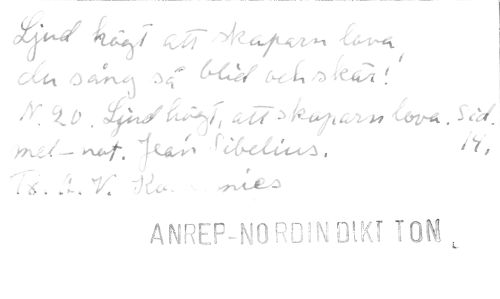 Ljud högt att skaparn lova,
du sång så blid och skär!
N. 20. Ljud högt, att skaparn lova. Sid. 14.
mel-not. Jean Sibelius.
V.
ANREP-NORDIN DIKT TON